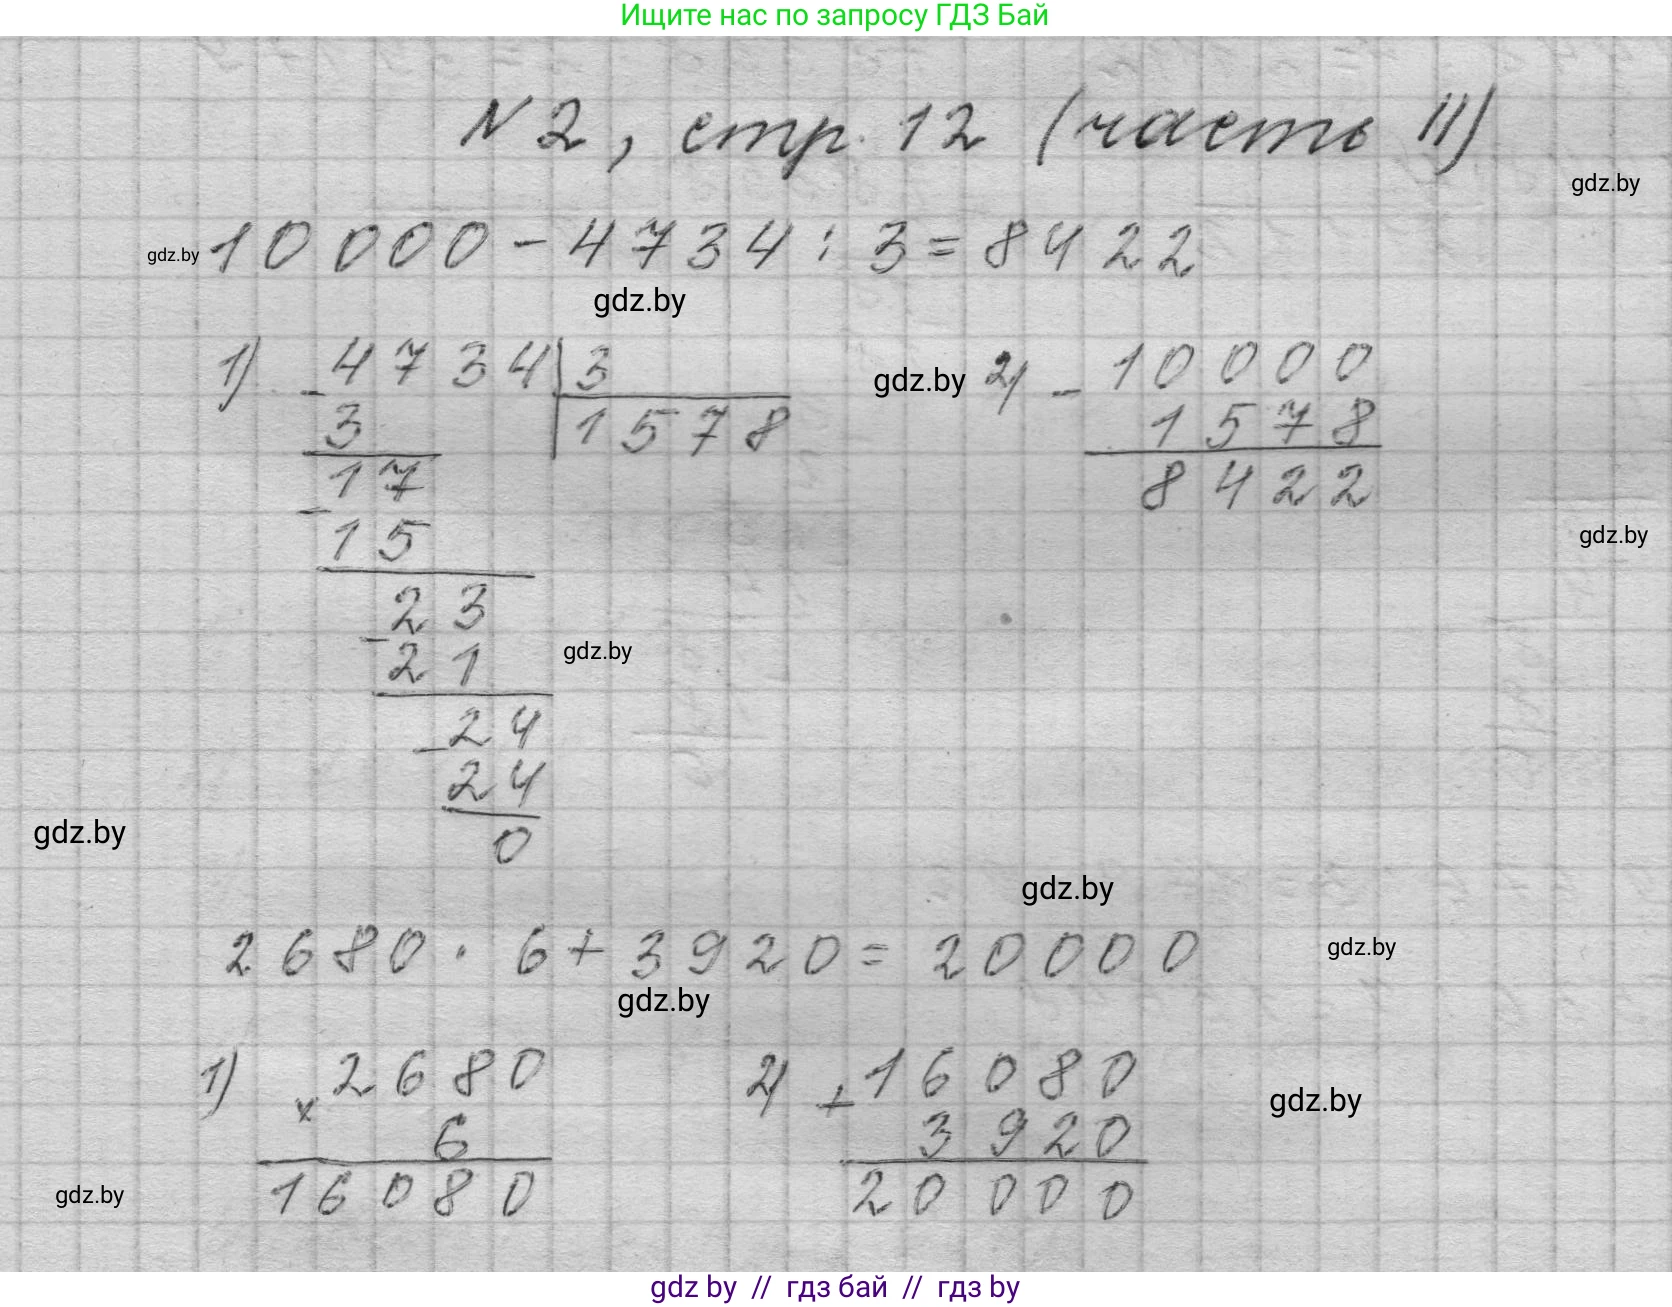 Ищите нас по запросу ГДЗ Бай
N 2, стр. 12 (часть II)
gdz.by
gdz.by 10 000 - 4734 : 3 = 8422
gdz.by
1) - 4734 | 3
3 1578
17
- 15
23
- 21
24
- 24
0
gdz.by
2) - 10000
1578
8422
gdz.by
gdz.by
gdz.by
gdz.by
2680 · 6 + 3920 = 20000
gdz.by
gdz.by
1) × 2680
6
16080
2) + 16080
3920
20 000
gdz.by
gdz.by
gdz by // гдз бай // гдз by